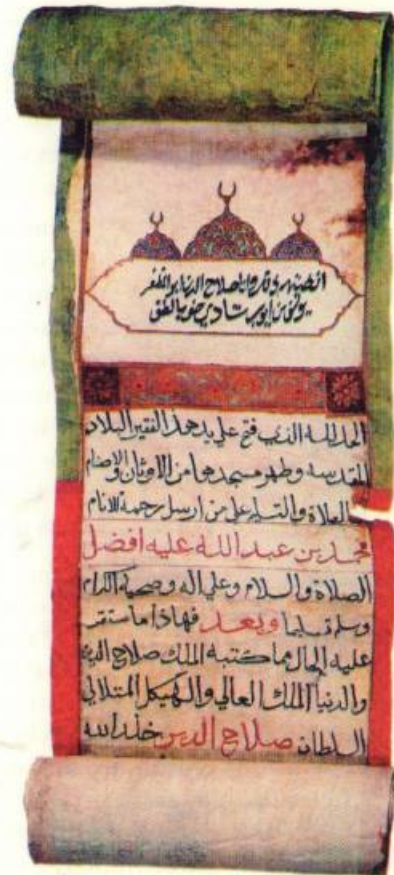 صلاح الدنيا
يوسف بن ايوب بن شادي
الحمد لله الذي فتح علي يد هذا الفقير البلاد
المقدسه وطهر مسجدها من الاوثان والاصنام
والصلاة والتسليم علي من ارسل رحمة للانام
محمد بن عبد الله عليه افضل
الصلاة والسلام وعلي اله وصحبه الكرام
وسلم تسليما وبعد فهاذا ما ستقر
عليه الحال مما كتبه الملك صلاح الدين
والدنيا الملك العالي والهيكل المتلالي
السلطان صلاح الدين خلد الله